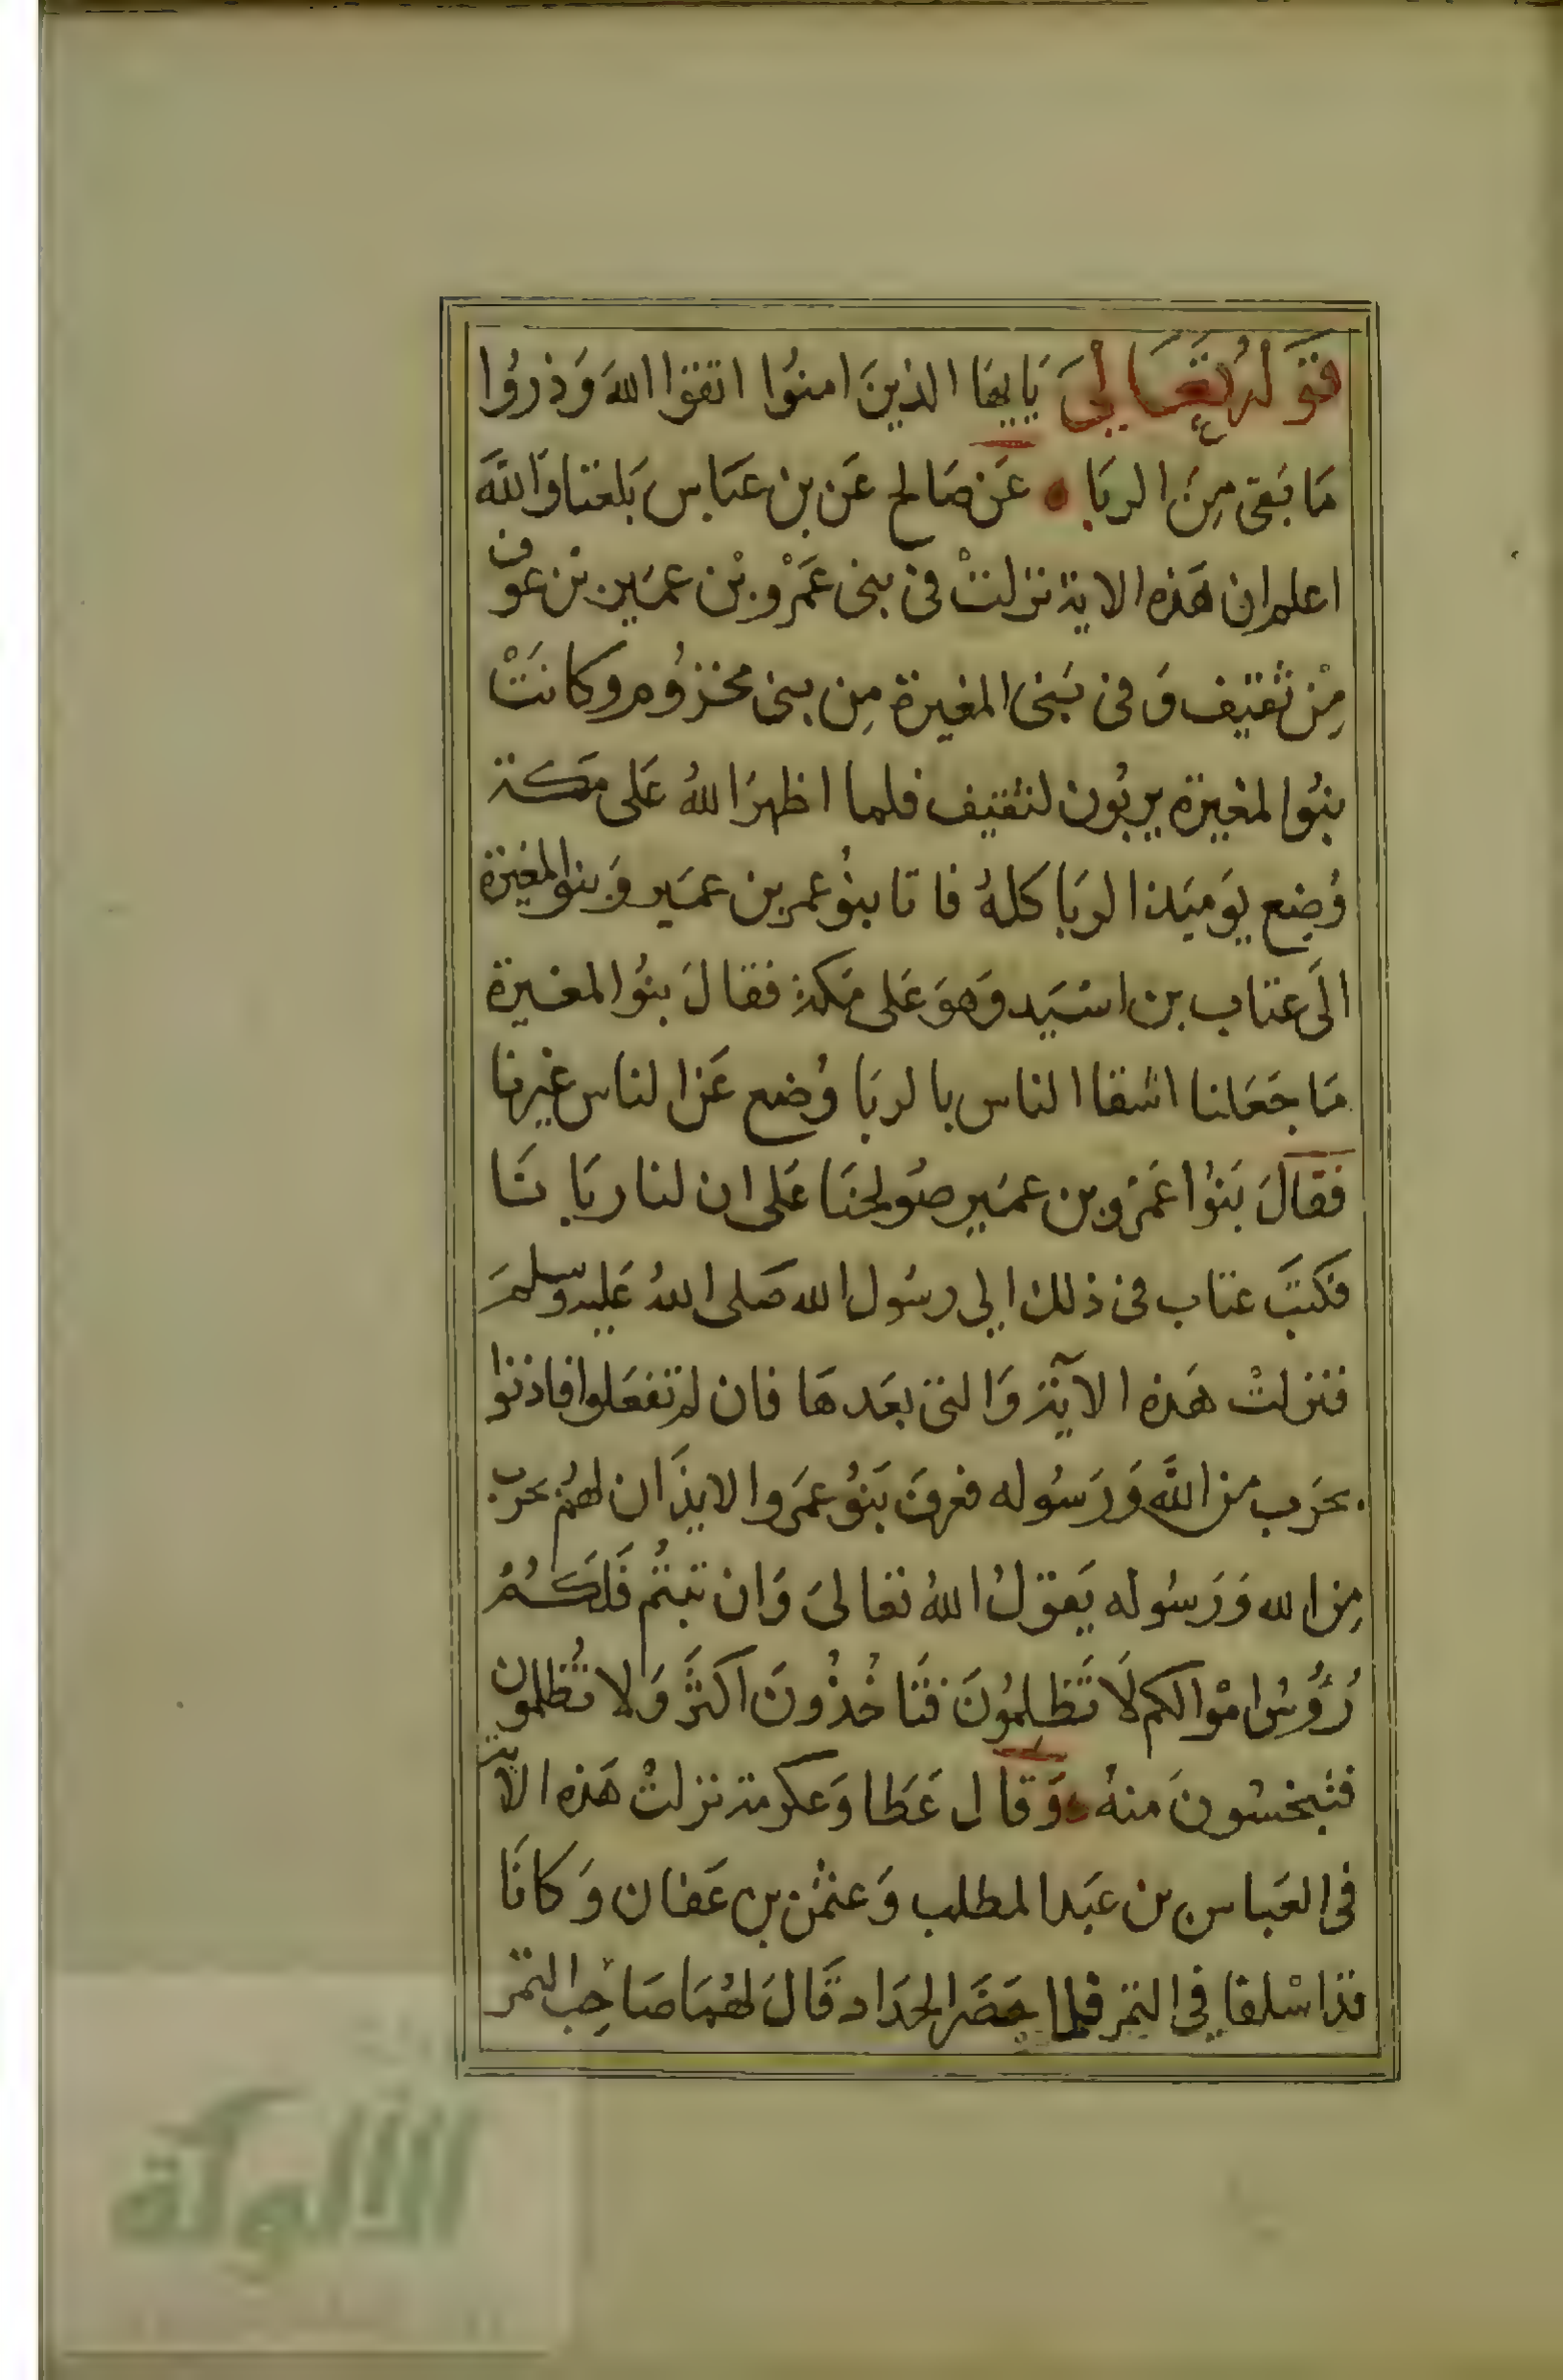 قَولُه تَعَالَى يَايهَا الذينَ امنوُا اتقوا اللهَ وَذروُا
مَا بَقى مِنَ الربَا عَن صَالح عَن بن عبَاس بَلغنا وَاللَّهَ
اعلم ان هَذه الاية نزلتْ فى بنى عَمْرو بْن عميَر بن عوف
مِنْ ثَقيف وَفى بَنى المغيرة مِن بنى مخزوُم وكانَتْ
بنوُا المغيرة يربوُن لثقيف فلما اظهرَ اللهُ عَلى مَكة
وُضِع يوَميَذ الربَا كلهُ فاتا بنوُ عمر بن عميَر وَبنوا المغيرة
الَى عتاب بن اسَيَد وَهوَ عَلى مَكة فقالَ بنوُا المغيرة
مَا جَعَلنا اشقا الناس بالربَا وُضع عَن الناس غيرنا
فقالَ بَنوُا عَمَرو بن عميَر صوُلحنَا عَلى ان لنا ربَانَا
فكتبَ عتاب فى ذلك الي رسوُل الله صَلى اللهُ عَليه وسلمَ
فنزلتْ هَذه الآية وَالتى بعَدهَا فان لم تفعَلوا فاذنوا
بحرَب من اللَّه وَرَسوُله فعرفَ بَنوُ عمَروا الايذَان لهمُ بحرب
مِن الله وَرَسوُله يَقولُ اللهُ تعالىَ وَان تبتُم فَلَكُمُ
رُؤُسُ امْوالكم لَا تَظلِموُنَ فتَاخُذُونَ اكثَر وَلا تُظلمون
فتُبخسُونَ منهُ وَقال عَطا وَعكرمة نزلتْ هَذه الاية
فى العَباس بن عبَد المطلب وَعثمْن بن عَفان وَكانَا
قد اسْلفا في التمَر فلما حَضَر الجدَاد قَالَ لهُمَا صَاحِب التمَر
الألوكة